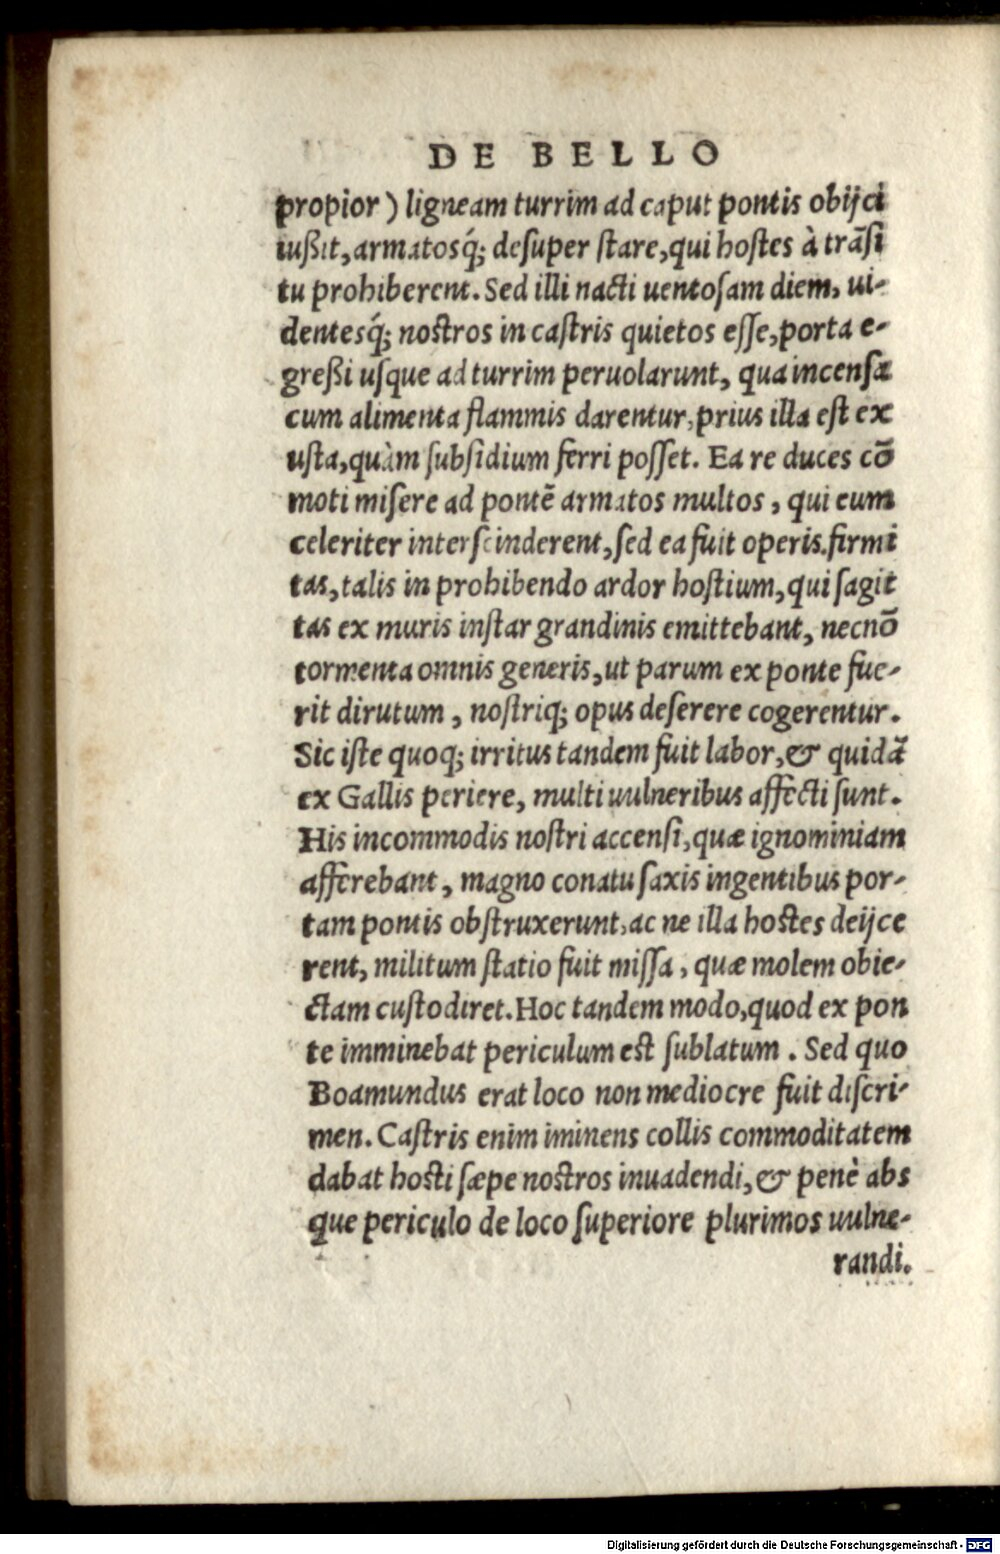 DE BELLO
propior) ligneam turrim ad caput pontis obijci
iußit, armatosq́; desuper stare, qui hostes à trãsi
tu prohiberent. Sed illi nacti uentosam diem, ui-
dentesq́; nostros in castris quietos esse, porta e-
greßi usque ad turrim peruolarunt, qua incensa
cum alimenta flammis darentur, prius illa est ex
usta, quàm subsidium ferri posset. Ea re duces cõ
moti misere ad pontẽ armatos multos, qui eum
celeriter interscinderent, sed ea fuit operis firmi
tas, talis in prohibendo ardor hostium, qui sagit
tas ex muris instar grandinis emittebant, necnõ
tormenta omnis generis, ut parum ex ponte fue-
rit dirutum, nostriq; opus deserere cogerentur.
Sic iste quoq; irritus tandem fuit labor, & quidã
ex Gallis periere, multi uulneribus affecti sunt.
His incommodis nostri accensi, quæ ignominiam
afferebant, magno conatu saxis ingentibus por-
tam pontis obstruxerunt, ac ne illa hostes deijce
rent, militum statio fuit missa, quæ molem obie-
ctam custodiret. Hoc tandem modo, quod ex pon
te imminebat periculum est sublatum. Sed quo
Boamundus erat loco non mediocre fuit discri-
men. Castris enim iminens collis commoditatem
dabat hosti sæpe nostros inuadendi, & penè abs
que periculo de loco superiore plurimos uulne-
randi.
Digitalisierung gefördert durch die Deutsche Forschungsgemeinschaft - DFG